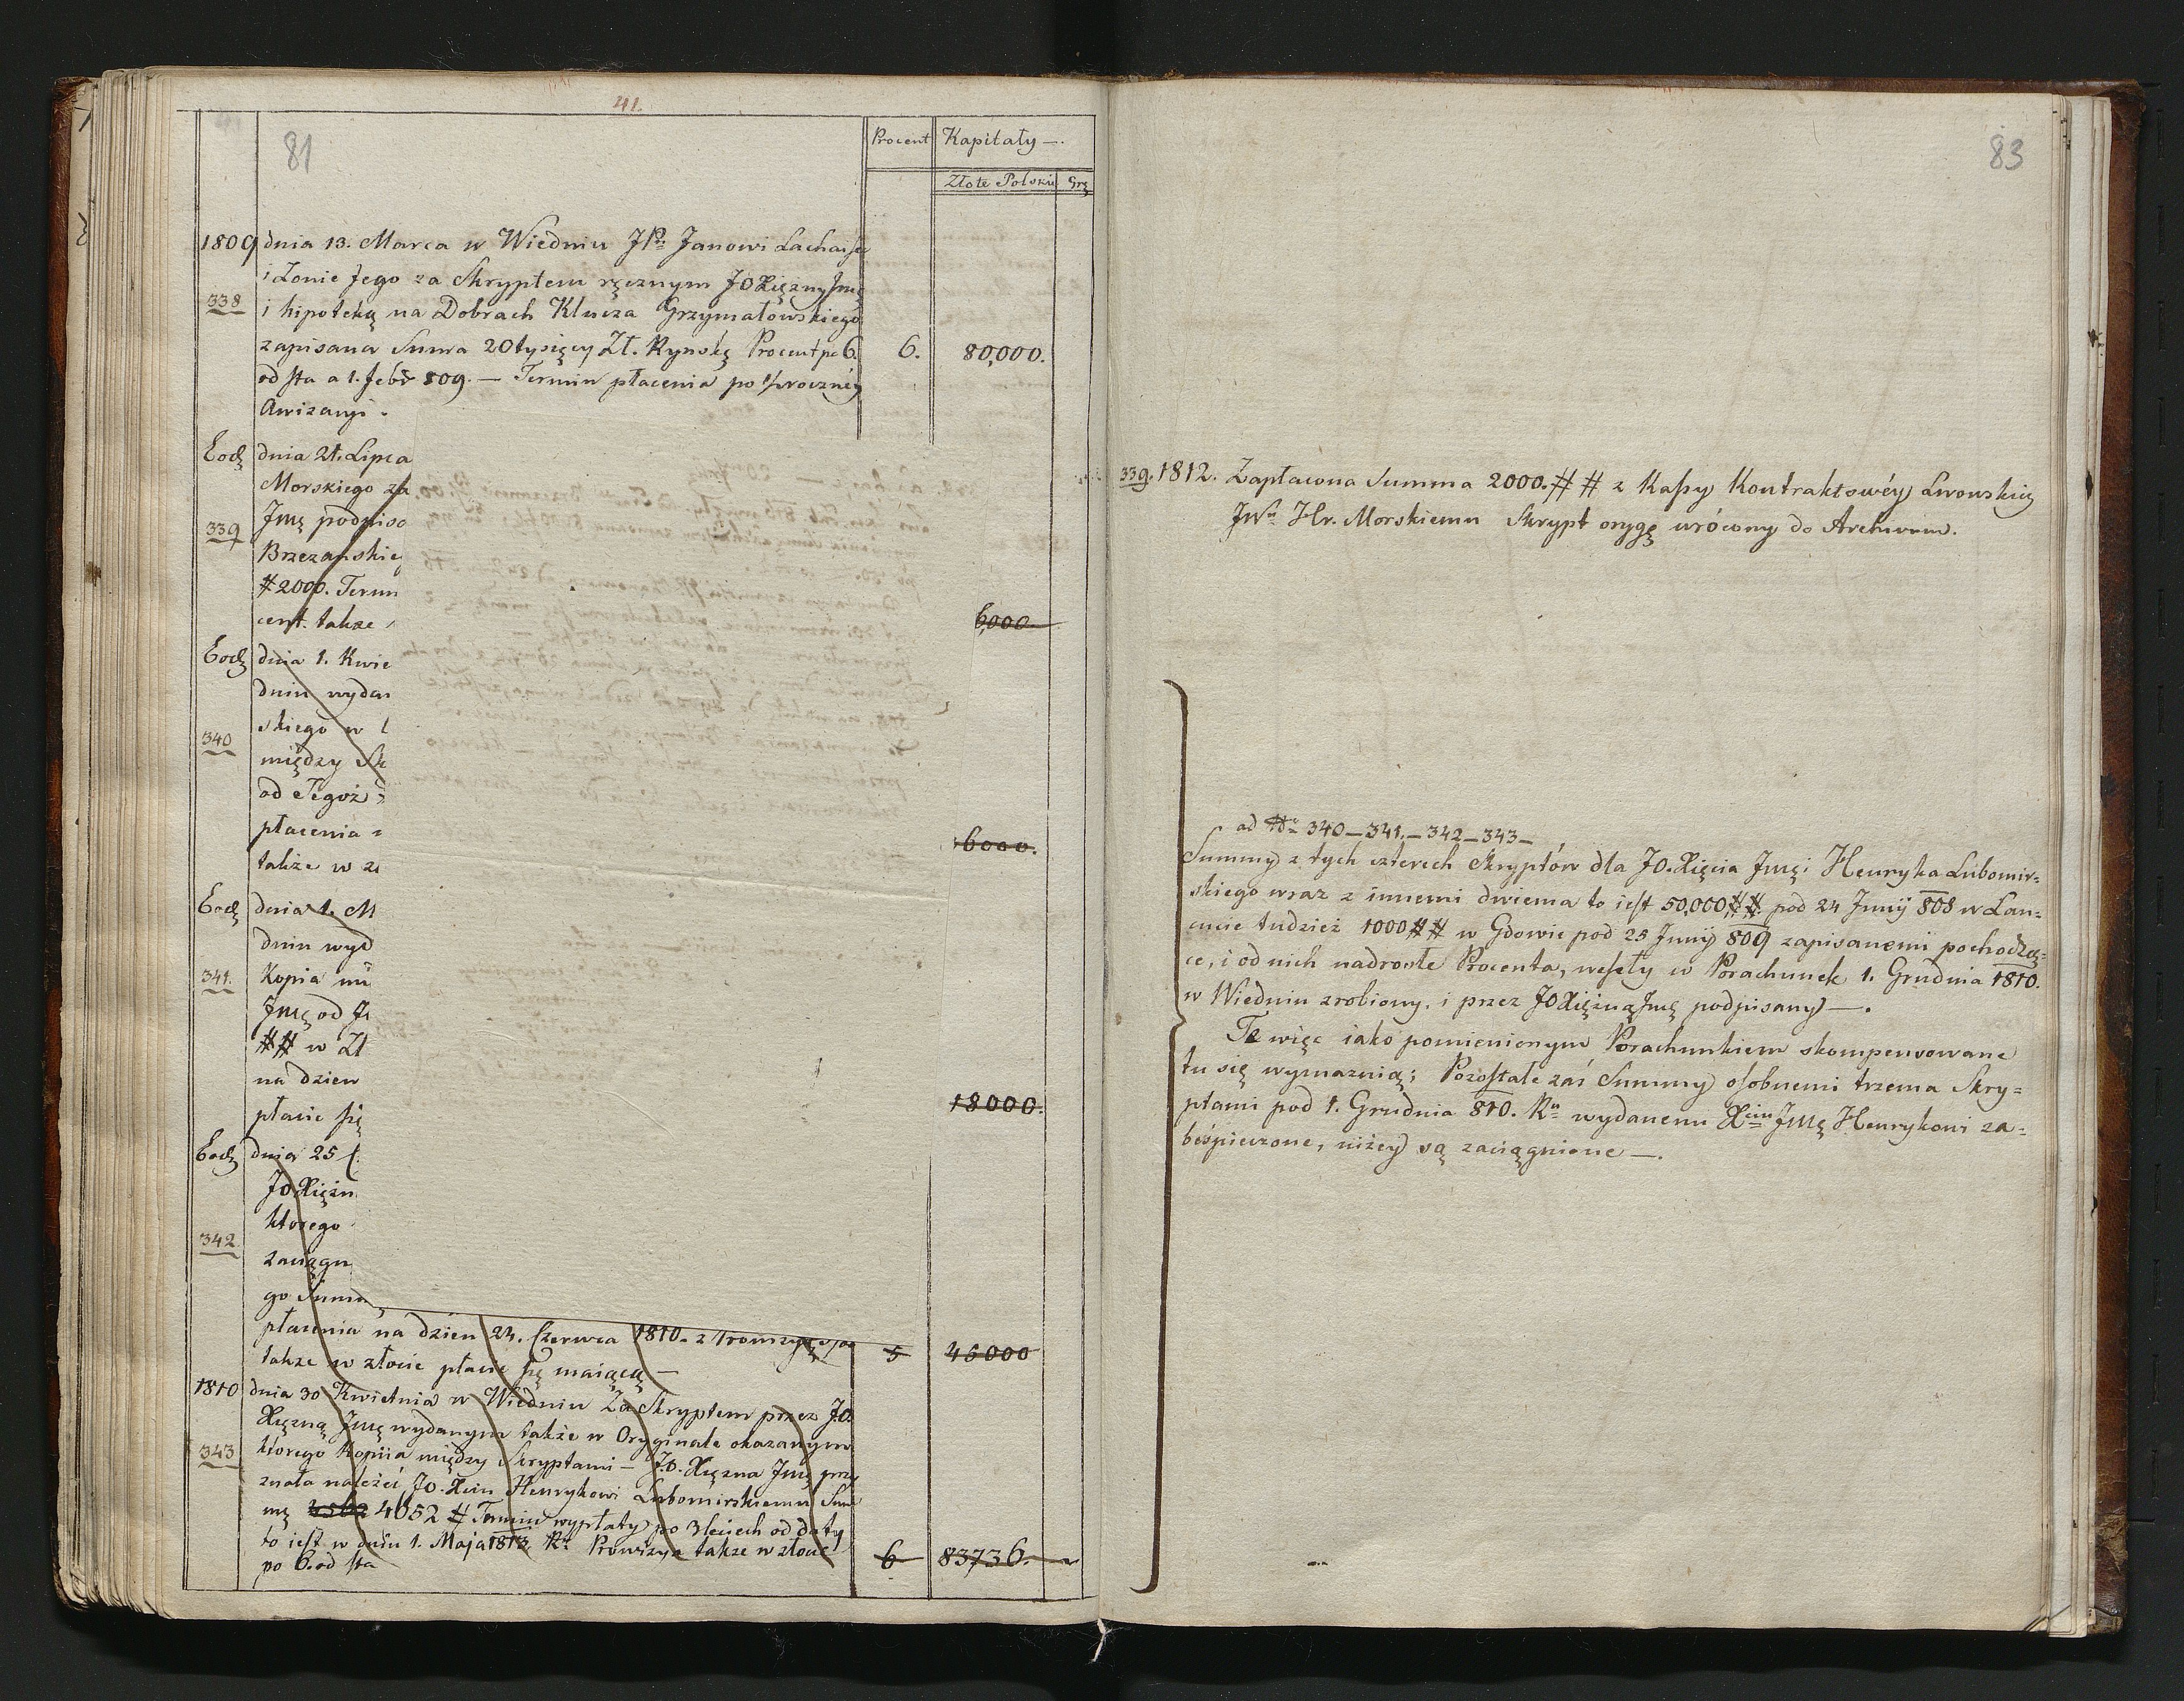 41.
81
Procent Kapitały —.
Złote Polskie Grę
1809 dnia 13. Marca w Wiedniu JPu Janowi
i Żonie Jego za Skryptem ręcznym JOXiężny Jmę
338 i hipoteką na Dobrach Klucza Grzymałowskiego
zapisana Suma 20 tysięcy Zł. Ryńskę Procent po 6. 6. 80,000.
od sta a 1. Febr 809. — Termin płacenia po ½ roczney
Awizacyi.
Eodę dnia 21. Lipca
Morskiego za
339 Jmę podpiso
Brzezańskie
# 2000. Term
cent. także 6,000
Eodę dnia 1. Kwie
dniu wydan
340 skiego w
między Sk
od Tegoż
płacenia 6000.
także w
Eodę dnia 1. M
dniu wyd
341. Kopia mi
Jmę od
## w Zł
na dzien
płacic się 18000.
Eodę dnia 25
JO Xiężn
342 ktorego
zaciągn
go Summ
płacenia na dzien 24. Czerwca 1810. z Prowizyą po 5 45000
także w złocie płacic się maiącą —
1810 dnia 30 Kwietnia w Wiedniu Za Skryptem przez J.O.
Xiężną Jmę wydanym także w Oryginale okazanym
343 ktorego Kopiia między Skryptami — J.O. Xiężna Jmę przy
znała należeć JO. Xciu Henrykowi Lubomirskiemu Sum
mę 4652 # Termin wypłaty po 3 leciech od daty
to iest w dniu 1. Maja 1813 Ru Prowizya także w złocie
po 6. od sta 6 83,736.
83
339. 1812. Zapłacona Summa 2000. ## z Kassy Kontraktowéy Lwowskiey
JWu Hr. Morskiemu Skrypt orygę wrócony do Archivum.
ad No 340 — 341. — 342 — 343 —
Summy z tych czterech Skryptów dla JO. Xięcia Jmę: Henryka Lubomir=
skiego wraz z innemi dwiema to iest 50,000 ## pod 24 Junij 808 w Łan=
cucie tudzież 1000 ## w Gdowie pod 25 Junij 809 zapisanemi pochodzą=
ce, i od nich nadrosłe Procenta, weszły w Porachunek 1. Grudnia 1810.
w Wiedniu zrobiony, i przez JOXiężną Jmę podpisany —.
Te więc iako pomienionym Porachunkiem skompensowane
tu się wymaznią; Pozostałe zaś Summy osobnemi trzema Skry=
ptami pod 1. Grudnia 810. Ru wydanemi Xciu Jmę Henrykowi za=
beśpieczone, niżey są zaciągnione —.